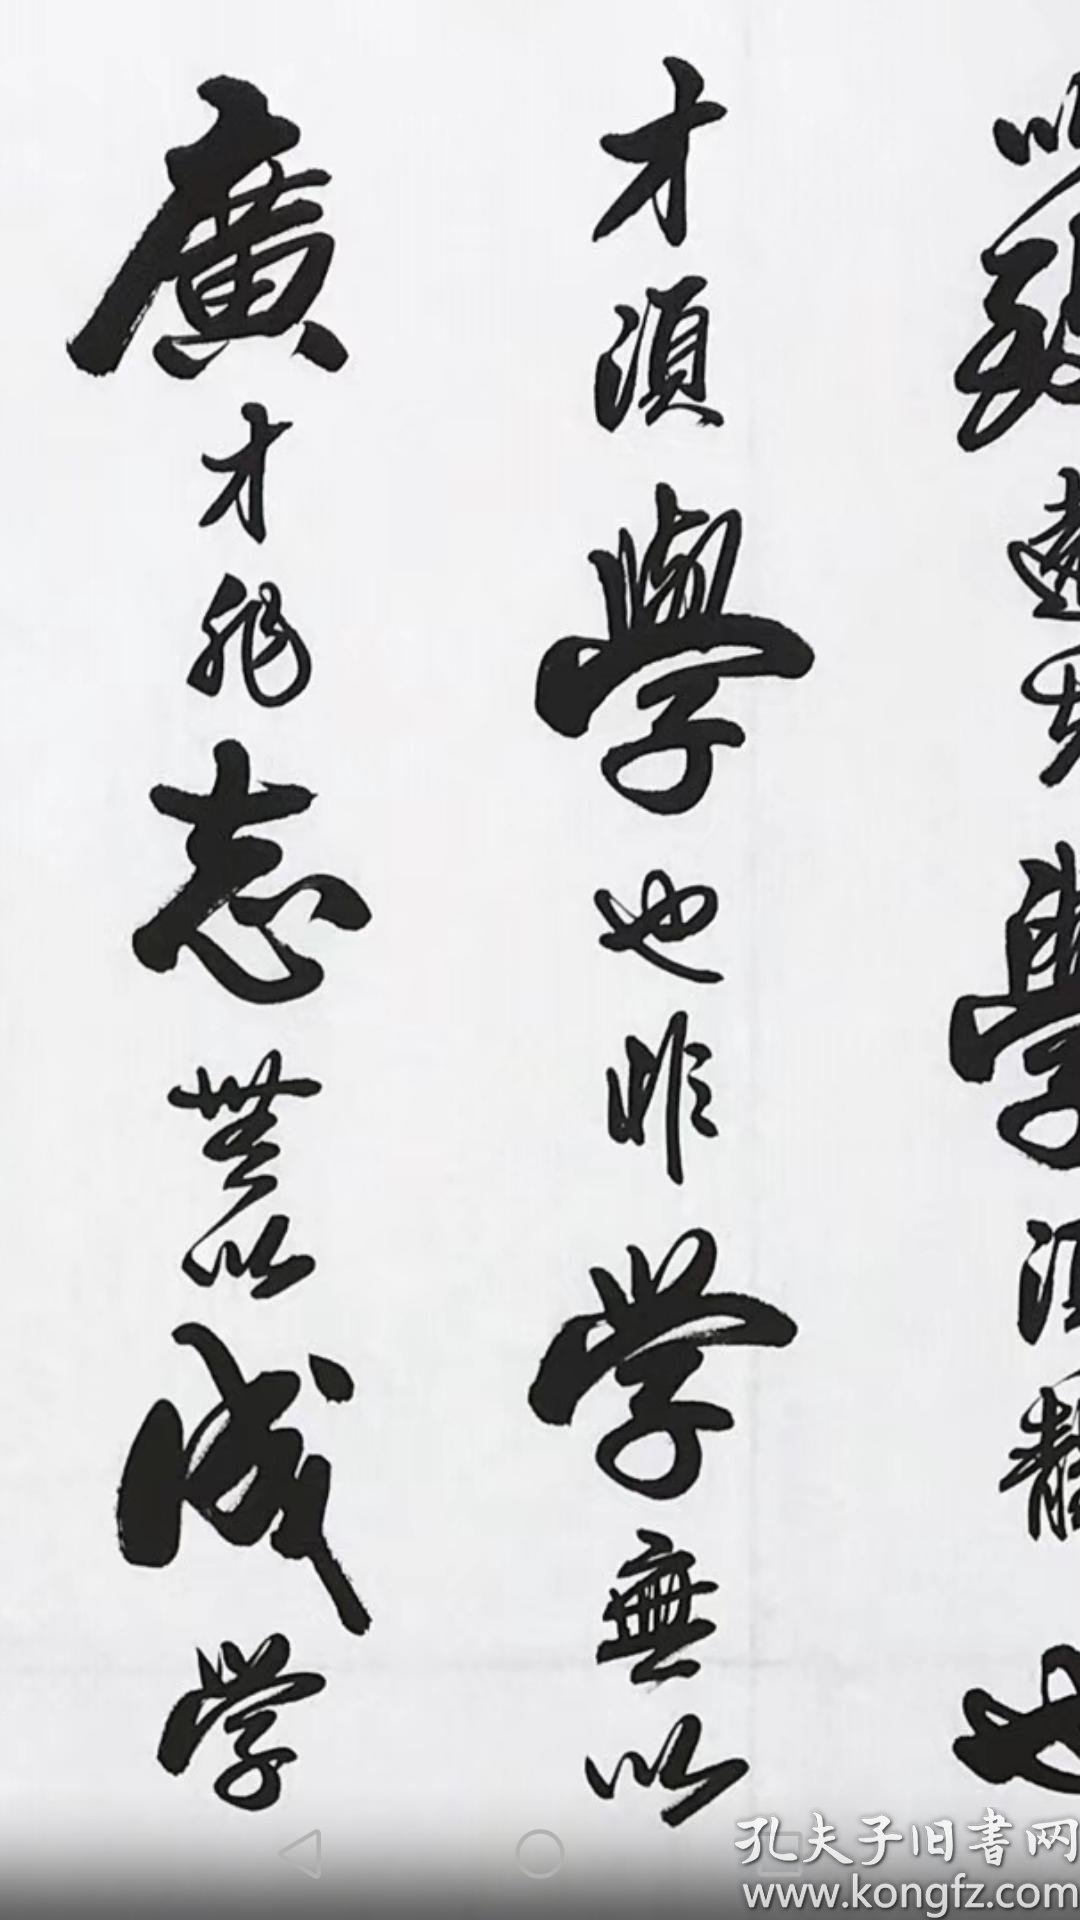 以致遠夫學須靜也
才須學也非学無以
廣才非志無以成学
孔夫子旧書网
www.kongfz.com